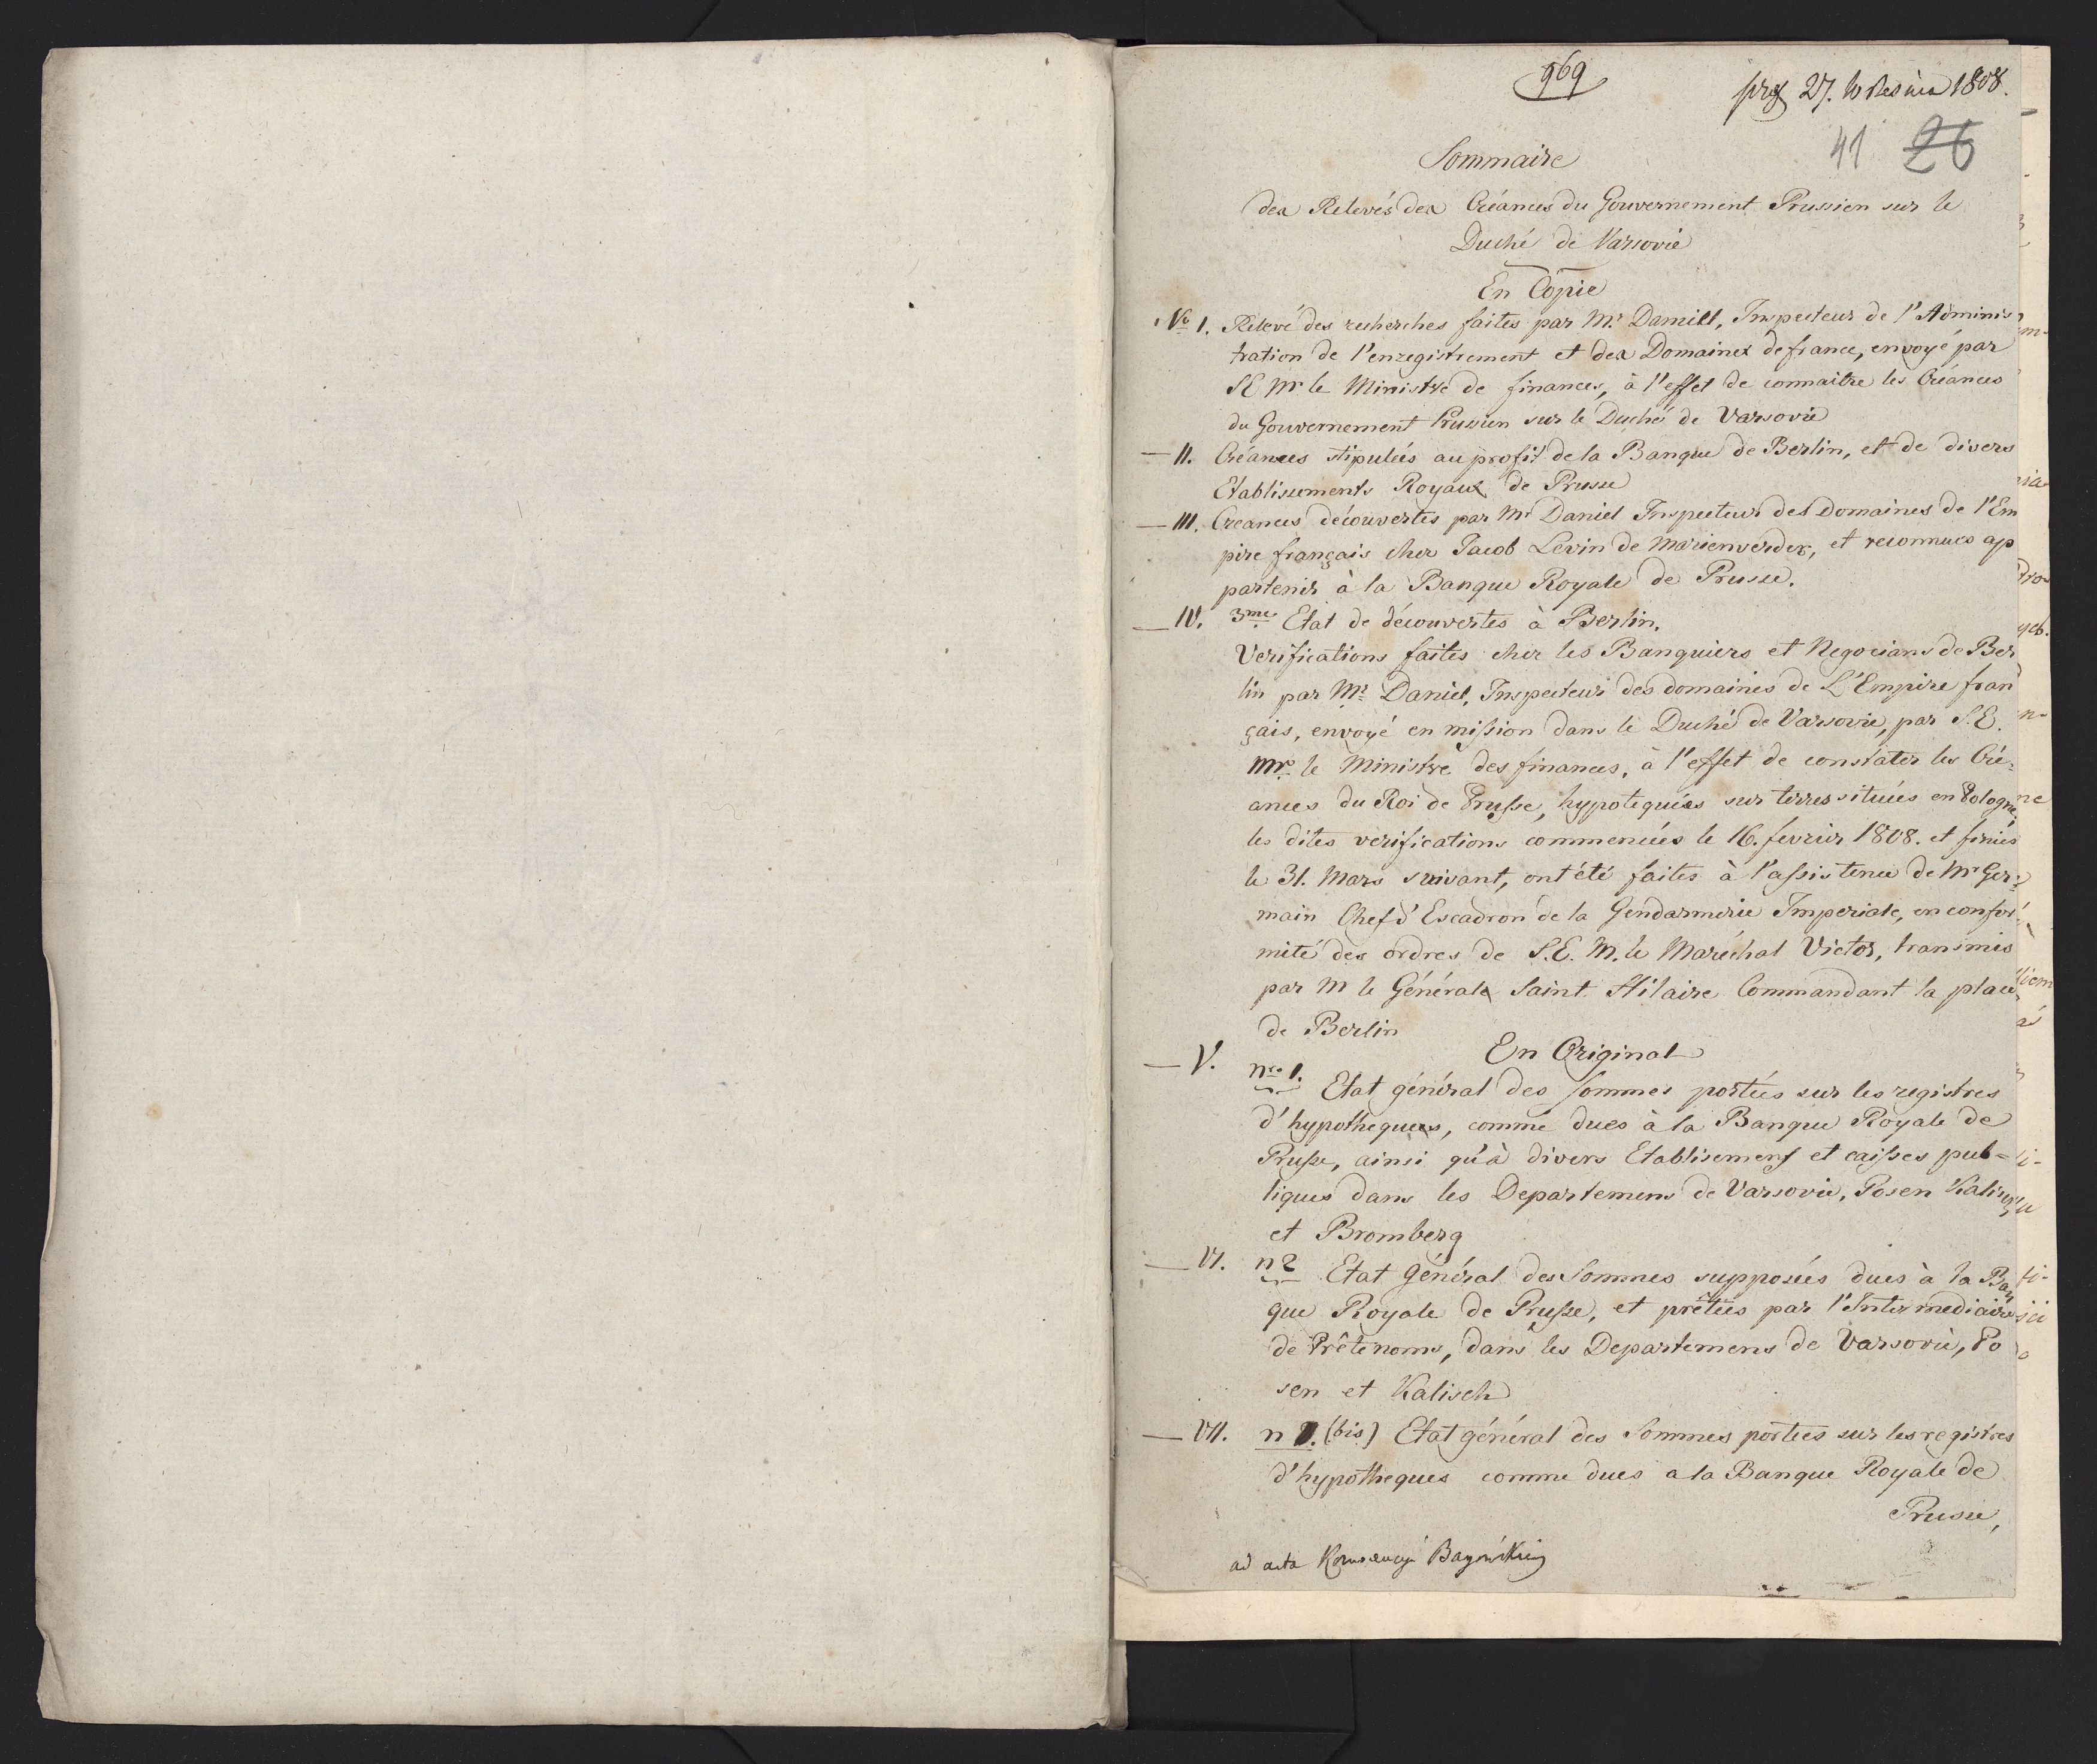 969
prs 27. Wrzesnia 1808.
41 26
Sommaire
des Relevés des Créances du Gouvernement Prussien sur le
Duché de Varsovie
En Copie
No 1. Relevé des recherches faites par Mr Daniell, Inspecteur de l'Adminis
tration de l'enregistrement et des Domaines de france, envoyé par
SE Mr le Ministre de finances, à l'effet de connaitre les Créances
du Gouvernement Prussien sur le Duché de Varsovie
— II. Créances stipulées au profit de la Banque de Berlin, et de divers
Etablissements Royaux de Prusse
— III. Creances découvertes par Mr Daniel Inspecteur des Domaines de l'Em
pire français chez Jacob Levin de Marienverder, et reconnues ap
partenir à la Banque Royale de Prusse.
— IV. 3me Etat de découvertes à Berlin.
Verifications faites chez les Banquiers et Negocians de Ber
lin par Mr Daniel, Inspecteur des domaines de L'Empire fran
çais, envoyé en mission dans le Duché de Varsovie, par S.E.
Mr. le Ministre des finances, à l'effet de constater les Cré=
ances du Roi de Prusse, hypotequées sur terres situées en Pologne,
les dites verifications commencées le 16. fevrier 1808. et finies
le 31. Mars suivant, ont été faites à l'assistence de Mr Ger=
main Chef d'Escadron de la Gendarmerie Imperiale, en confor=
mité des ordres de S.E. M. le Maréchal Victor, transmis
par M le Générale Saint Hilaire Commandant la place
de Berlin
En Original
— V. nro 1. Etat général des Sommes portées sur les registres
d'hypotheques, comme dues à la Banque Royale de
Prusse, ainsi qu'à divers Etablisemens et caisses pub=
liques dans les Departemens de Varsovie, Posen Kalisch
et Bromberg
— VI. n 2 Etat général des Sommes supposées dues à la Ban
que Royale de Prusse, et prêtées par l'Intermediaire
de Prêtenoms, dans les Departemens de Varsovie, Po
sen et Kalisch
— VII. n 1. (bis) Etat général des Sommes portees sur les registres
d'hypotheques comme dues a la Banque Royale de
Prusse,
ad acta Konwencyi Bayońskiey